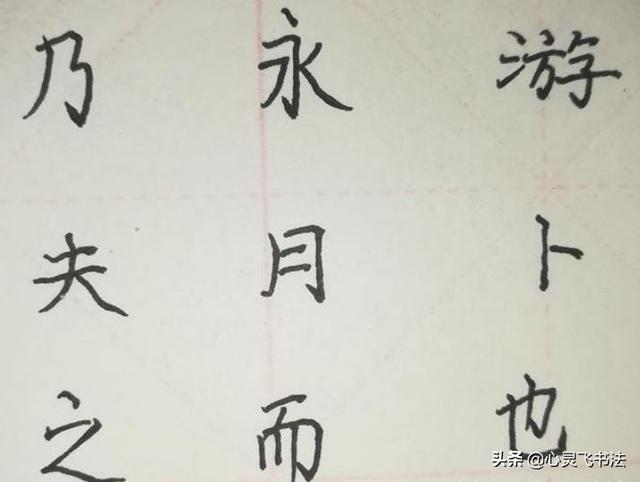 乃 永 游
夫 月 卜
之 而 也
头条 @心灵飞书法